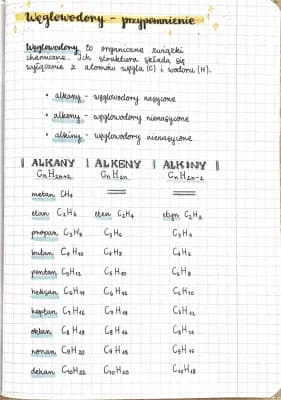 Węglowodory - przypomnienie
Węglowodory to organiczne związki
chemiczne. Ich struktura składa się
wyłącznie z atomów węgla (C) i wodoru (H).
• alkany - węglowodory nasycone
• alkeny - węglowodory nienasycone
• alkiny - węglowodory nienasycone
ALKANY | ALKENY | ALKINY
CnH2n+2 CnH2n CnH2n-2
metan CH4
etan C2H6 eten C2H4 etyn C2H2
propan C3H8 C3H6 C3H4
butan C4H10 C4H8 C4H6
pentan C5H12 C5H10 C5H8
heksan C6H14 C6H12 C6H10
heptan C7H16 C7H14 C7H12
oktan C8H18 C8H16 C8H14
nonan C9H20 C9H18 C9H16
dekan C10H22 C10H20 C10H18